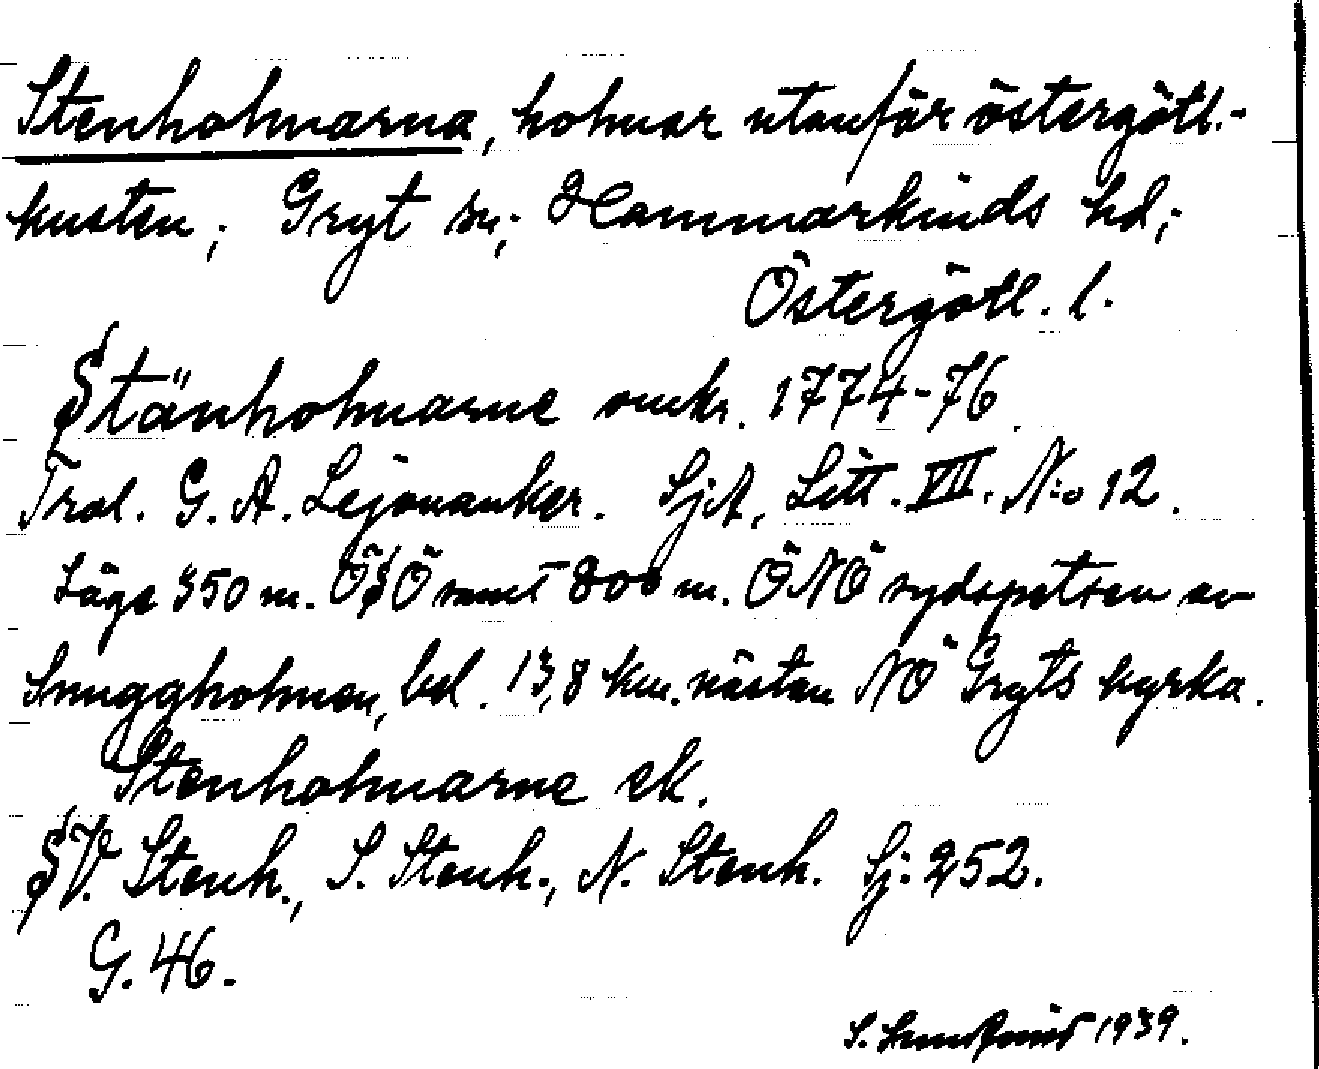 Stenholmarna, holmar utanför östergötl.-
kusten; Gryt sn; Hammarkinds hd;
Östergötl. l.
Stänholmarne omkr. 1774-76.
Trol. G. A. Lejonanker. SjA, Litt. VII. N:o 12.
Läge 350 m. ÖSÖ samt 800 m. ÖNÖ sydspetsen av
Snuggholmen, bel. 13,8 km. nästan NÖ Gryts kyrka.
Stenholmarne ek.
V. Stenh., S. Stenh., N. Stenh. Sj. 252.
G. 46.
S. 1939.